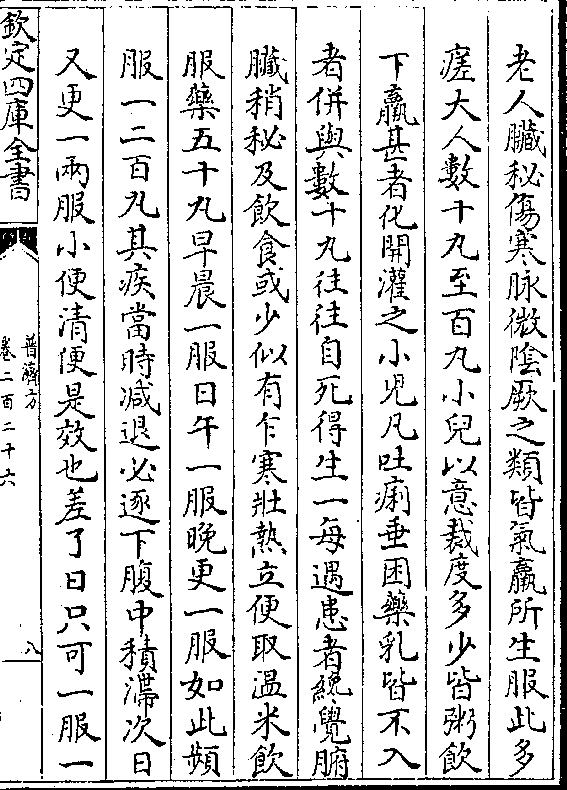 老人臟秘傷寒脉微陰厥之類皆氣羸所生服此多
瘥大人數十丸至百丸小兒以意裁度多少皆粥飲
下羸甚者化開灌之小児凡吐痢垂困藥乳皆不入
者併與數十丸往往自死得生一每遇患者纔覺腑
臟稍秘及飲食或少似有乍寒壯熱立便取温米飲
服藥五十丸早晨一服日午一服晚更一服如此頻
服一二百丸其疾當時減退必逐下腹中積滯次日
又更一兩服小便清便是效也差了日只可一服一
欽定四庫全書
普濟方
卷二百二十六
八